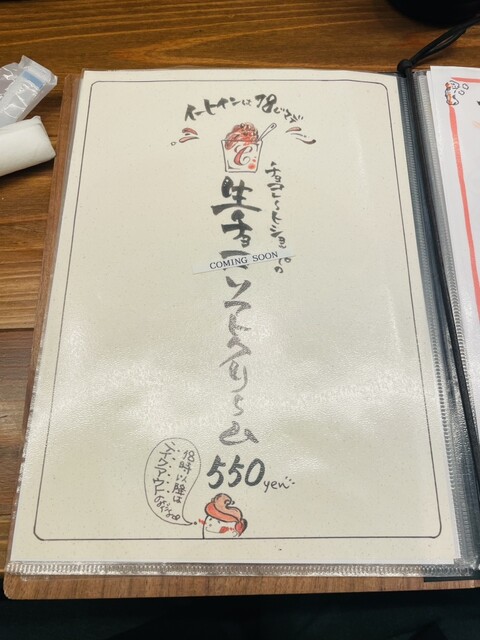 イートインは18じまで
チョコレートショップの
生チョコソフトクリーム
COMING SOON
550yen
18時以降は
テイクアウトのみ